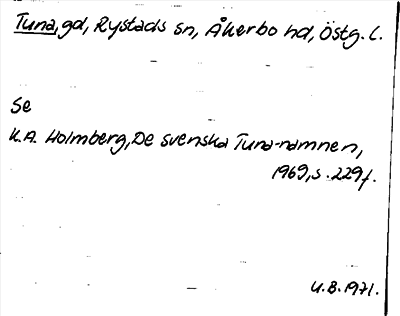 Tuna, gd, Rystads sn, Åkerbo hd, Östg. l.
Se
K.A. Holmberg, De svenska Tuna-namnen,
1969, s. 229f.
U.B. 1971.